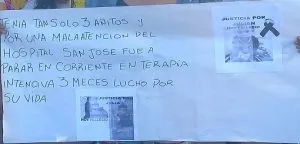 TENIA TAN SOLO 3 AÑITOS Y
POR UNA MALA ATENCION DEL
HOSPITAL SAN JOSE FUE A
PARAR EN CORRIENTE EN TERAPIA
INTENCIVA 3 MECES LUCHO POR
SU VIDA
JUSTICIA POR
JUSTICIA POR